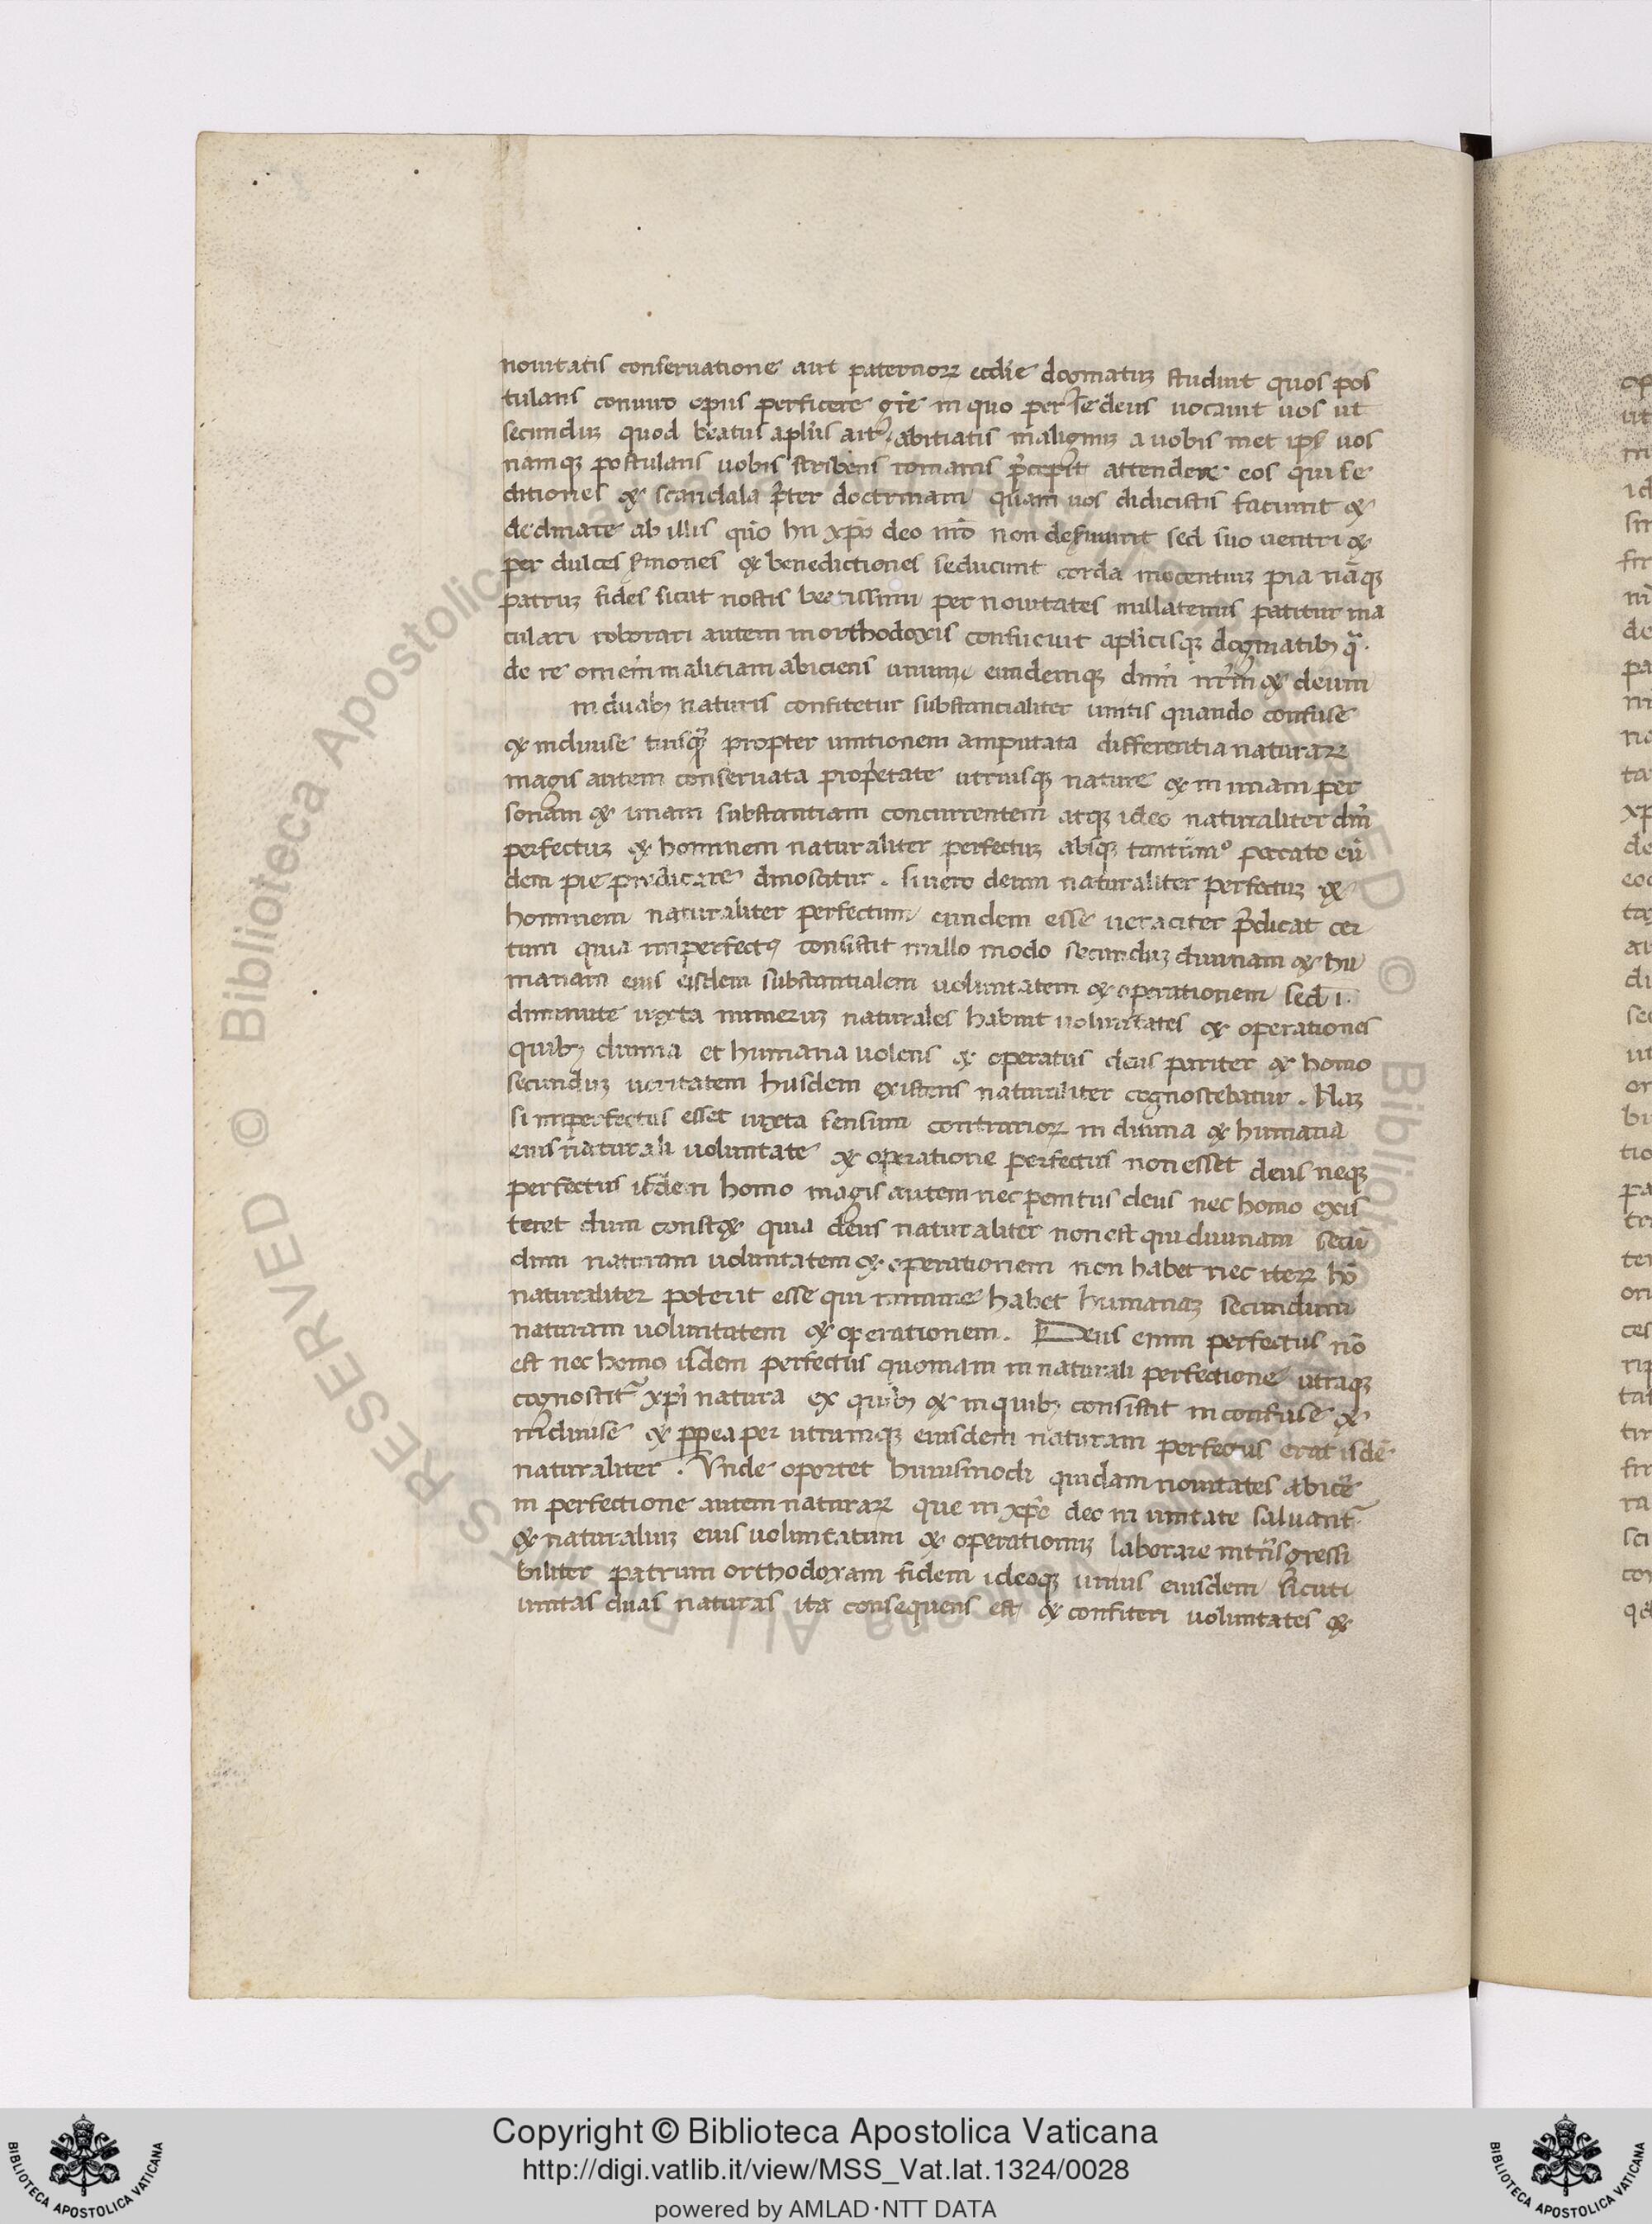 nouitatis conseruatione aut paternorꝝ ecclie dogmatuꝫ student quos pos
tulans conuiro opus perficere gr̄e in quo per se deus uocauit uos ut
secunduꝫ quod beatus aplūs ait abitiatis malignuꝫ a uobis met ip̄s uos
namqꝫ postulans uobis scribens romanis p̄cepit attendere eos qui se
ditiones & scandala p̄ter doctrinam quam uos didicistis faciunt &
declinate ab illis qm̄o hii xp̄o deo nr̄o non deseruiunt sed suo uentri &
per dulces sermones & benedictiones seducunt corda inocentiuꝫ pia nāqꝫ
patruꝫ fides sicut nostis beatissimi per nouitates nullatenus patitur ma
culari roborari autem in orthodoxis consueuit aplicisqꝫ dogmatibꝫ q̄
de re omnem malitiam abiciens unum eundemqꝫ dn̄m nr̄m & deum
in duabꝫ naturis confitetur substancialiter unitis quando confuse
& indiuise propter unitionem amputata differentia naturaꝝ
magis autem conseruata proprietate utriusqꝫ nature & in unam per
sonam & unam substantiam concurrentem atqꝫ ideo naturaliter dm̄
perfectuꝫ & hominem naturaliter perfectuꝫ absqꝫ tantūmº peccato eū
dem pie predicare dinoscitur. si uero deum naturaliter perfectuꝫ &
hominem naturaliter perfectum eundem esse ueraciter p̄dicat cer
tum quia imperfectꝰ consistit nullo modo secunduꝫ diuinam & hu
manam eius eisdem substantialem uoluntatem & operationem sed i
diminute iuxta numeruꝫ naturales habuit uoluntates & operationes
quibꝫ diuina et humana uolens & operatus deus pariter & homo
secunduꝫ ueritatem huisdem existens naturaliter cognoscebatur. Naꝫ
si imperfectus esset iuxta sensum contrariorꝝ in diuina & humana
eius naturali uoluntate & operatione perfectus non esset deus neqꝫ
perfectus isdem homo magis autem nec penitus deus nec homo exis
teret dum const& quia deus naturaliter non est qui diuinam secū
dum naturam uoluntatem & operationem non habet nec iterꝝ hō
naturaliter poterit esse qui minime habet humanaꝫ secundum
naturam uoluntatem & operationem. Deus enim perfectus nō
est nec homo isdem perfectus quoniam in naturali perfectione utraqꝫ
cognoscit᷑ xp̄i natura ex quibꝫ & in quibꝫ consistit in confuse &
indiuise & pp̄ea per utrumqꝫ eiusdem naturam perfectus erat isdē
naturaliter. Vnde oportet huiusmodi quidam nouitates abice
in perfectione autem naturaꝝ que in xp̄o deo in unitate saluant᷑
& naturaliuꝫ eius uoluntatum & operationuꝫ laborare intn̄sgressi
biliter patrum orthodoxam fidem ideoqꝫ unius eiusdem sicuti
unitas duas naturas ita consequens est & confiteri uoluntates &
Copyright © Biblioteca Apostolica Vaticana
http://digi.vatlib.it/view/MSS_Vat.lat.1324/0028
powered by AMLAD·NTT DATA